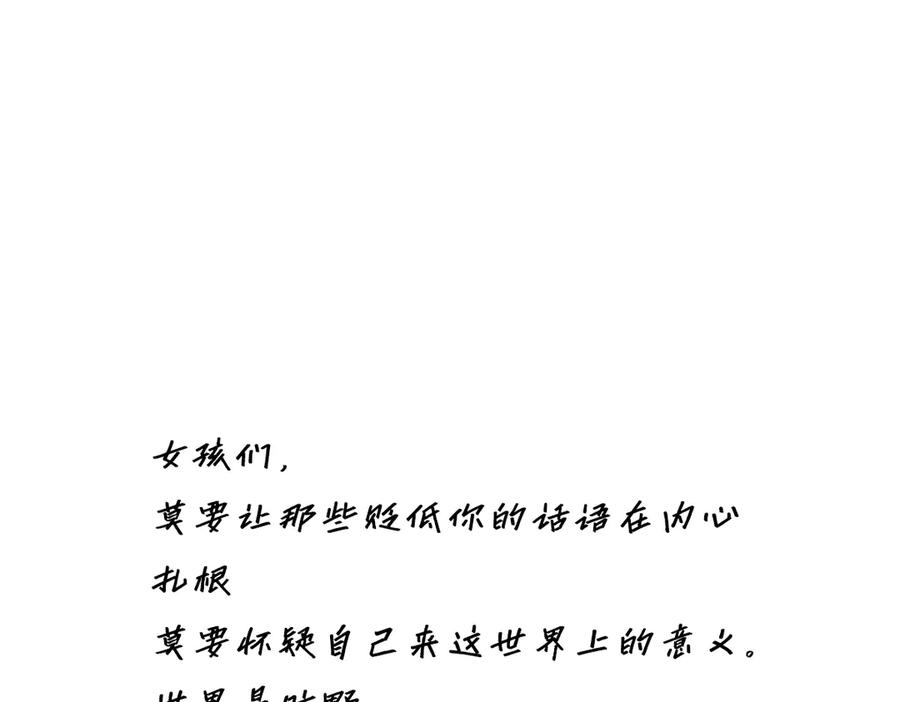 女孩们,
莫要让那些贬低你的话语在内心
扎根
莫要怀疑自己来这世界上的意义。
世界是旷野